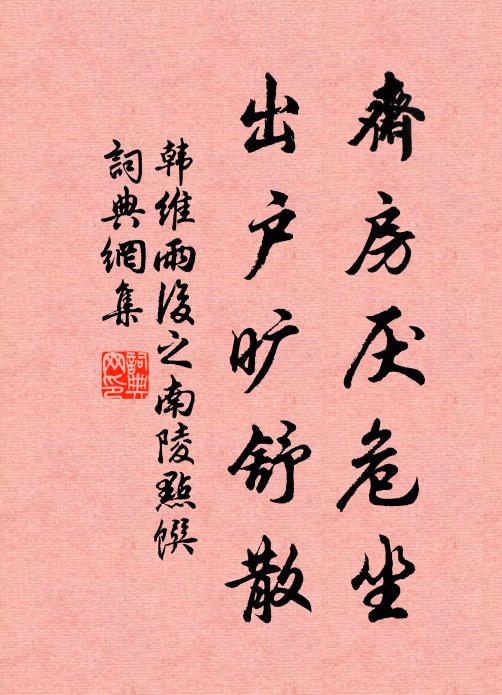 齋房厌危坐
出户旷舒散
韩维雨后之南陵點馔
詞典網集
詞典網印